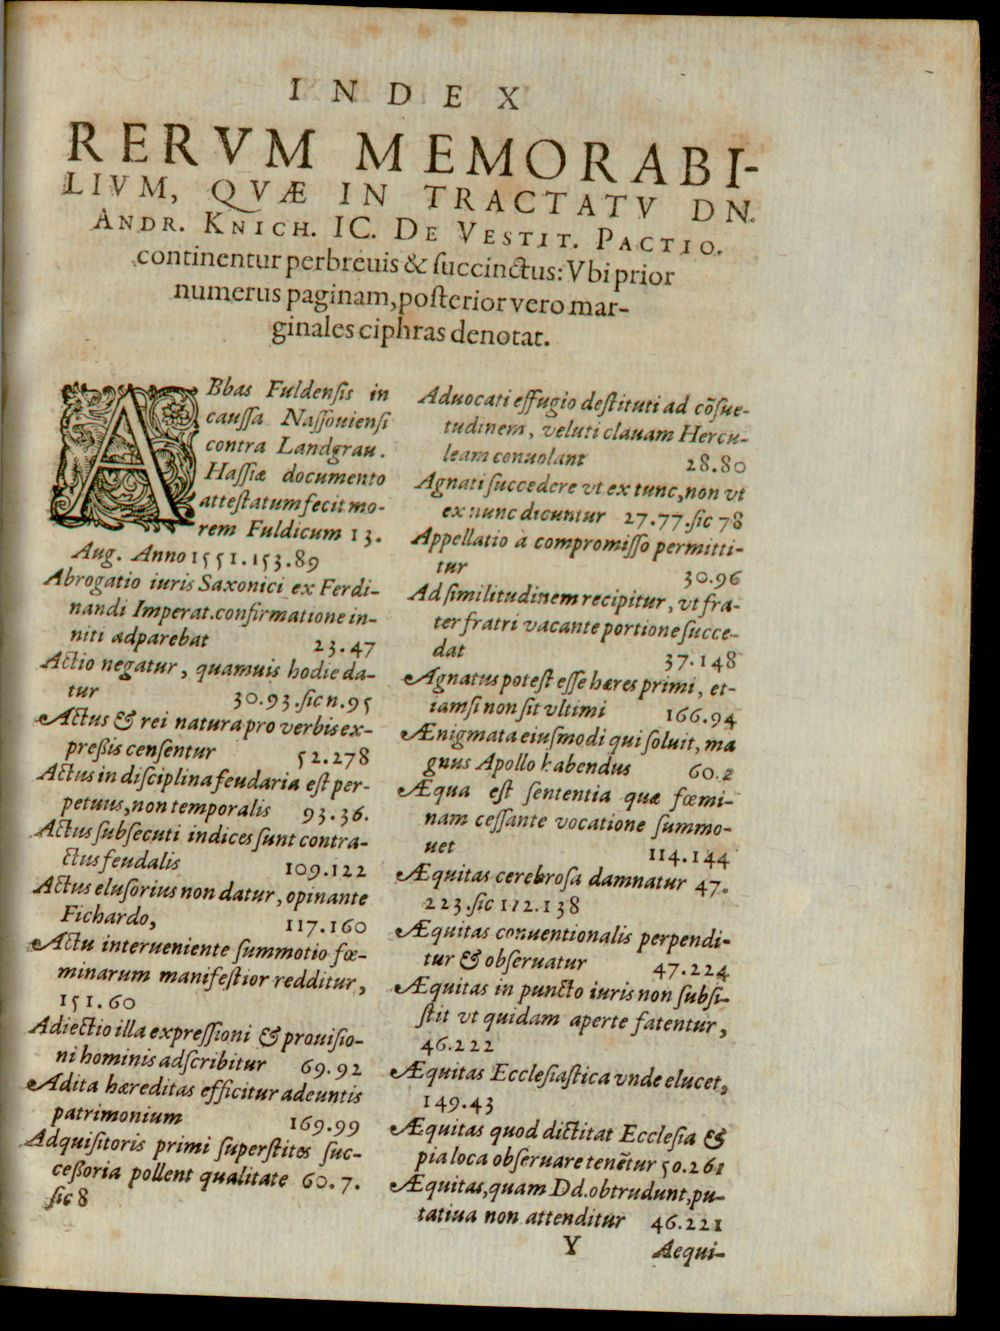 INDEX
RERVM MEMORABI-
LIVM, QVÆ IN TRACTATV DN.
ANDR. KNICH. IC. DE VESTIT. PACTIO.
continentur perbreuis & ſuccinctus: Vbi prior
numerus paginam, poſterior vero mar-
ginales ciphras denotat.
ABbas Fuldenſis in
cauſſa Naſſouienſi
contra Landgrau.
Haſſiæ documento
atteſtatum fecit mo-
rem Fuldicum 13.
Aug. Anno 1551. 153.89
Abrogatio iuris Saxonici ex Ferdi-
nandi Imperat. confirmatione in-
niti adparebat 23.47
Actio negatur, quamuis hodie da-
tur 30.93. ſic n. 95
Actus & rei natura pro verbis ex-
preßis cenſentur 52.278
Actus in diſciplina feudaria eſt per-
petuus, non temporalis 93.36.
Actus ſubſecuti indices ſunt contra-
ctus feudalis 109.122
Actus eluſorius non datur, opinante
Fichardo, 117.160
Actu interueniente ſummotio fœ-
minarum manifeſtior redditur,
151.60
Adiectio illa expreſſioni & prouiſio-
ni hominis adſcribitur 69.92
Adita hæreditas efficitur adeuntis
patrimonium 169.99
Adquiſitoris primi ſuperſtites ſuc-
ceßoria pollent qualitate 60.7.
ſic 8
Aduocati effugio deſtituti ad cõſue-
tudinem, veluti clauam Hercu-
leam conuolant 28.80
Agnati ſuccedere vt ex tunc, non vt
ex nunc dicuntur 27.77. ſic 78
Appellatio à compromiſſo permitti-
tur 30.96
Ad ſimilitudinem recipitur, vt fra-
ter fratri vacante portione ſucce-
dat 37.148
Agnatus poteſt eſſe hæres primi, et-
iamſi non ſit vltimi 166.94
Ænigmata eiuſmodi qui ſoluit, ma
gnus Apollo habendus 60.2
Æqua eſt ſententia quæ fœmi-
nam ceſſante vocatione ſummo-
uet 114.144
Æquitas cerebroſa damnatur 47.
223. ſic 112.138
Æquitas conuentionalis perpendi-
tur & obſeruatur 47.224
Æquitas in puncto iuris non ſubſi-
ſtit vt quidam aperte fatentur,
46.222
Æquitas Eccleſiaſtica vnde elucet,
149.43
Æquitas quod dictitat Eccleſia &
pia loca obſeruare tenẽtur 50.261
Æquitas, quam Dd. obtrudunt, pu-
tatiua non attenditur 46.221
Y Aequi-